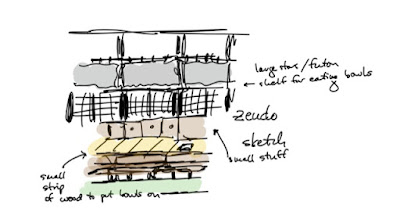 large stars / futon
shelf for eating bowls
zendo
sketch
small stuff
small
strip
of wood to put bowls on